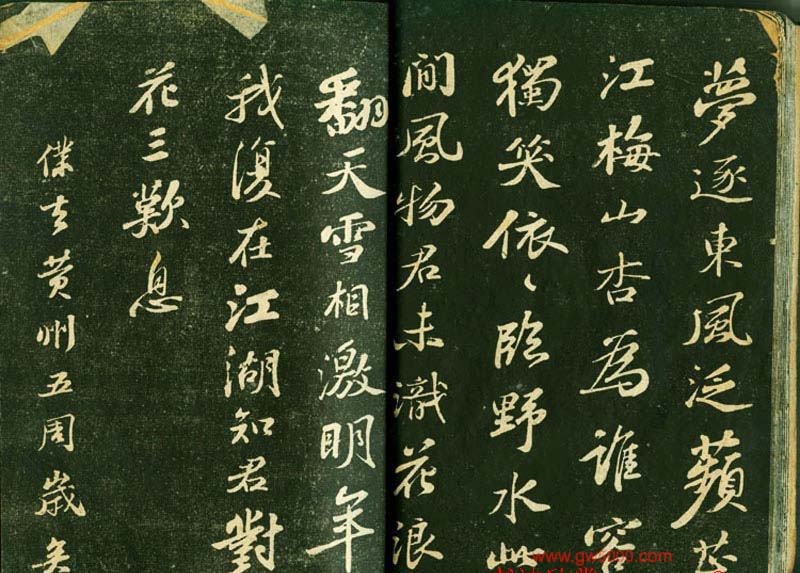 夢逐東風泛蘋芷
江梅山杏為誰容
獨笑依〻臨野水此
間風物君未識花浪
翻天雪相激明年
我復在江湖知君對
花三歎息
僕去黃州五周歲矣